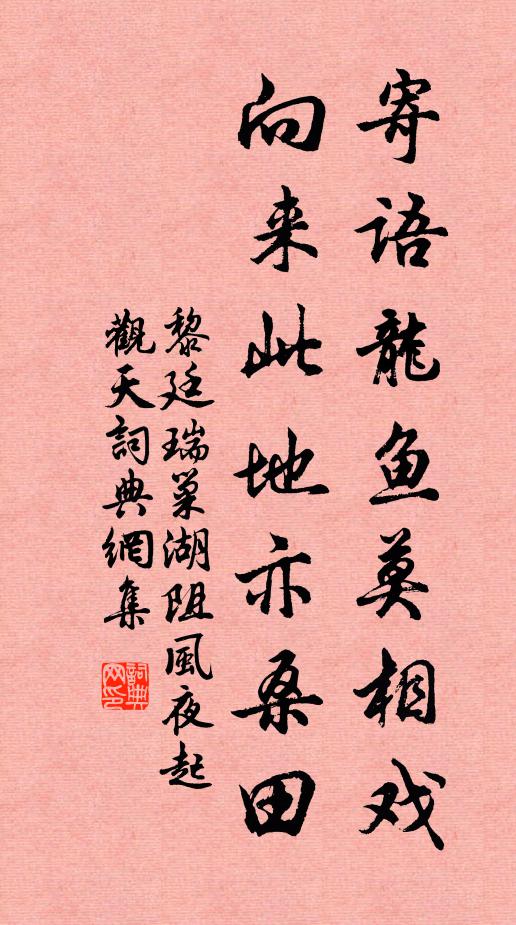 寄语龍鱼莫相戏
向来此地亦桑田
黎廷瑞巢湖阻風夜起
觀天詞典網集
詞典网印